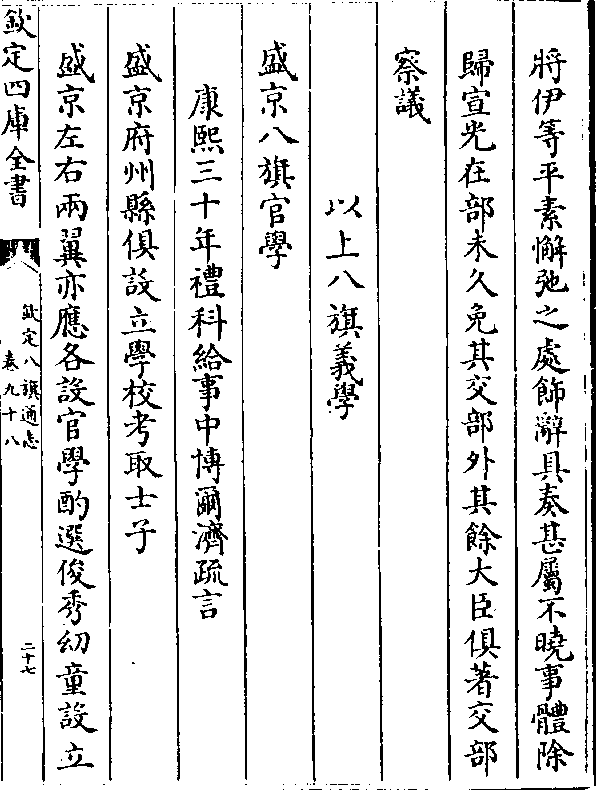 將伊等平素懈弛之處飾辭具奏甚屬不曉事體除
歸宣光在部未久免其交部外其餘大臣俱著交部
察議
以上八旗義學
盛京八旗官學
康熙三十年禮科給事中博爾濟疏言
盛京府州縣俱設立學校考取士子
盛京左右兩翼亦應各設官學酌選俊秀幼童設立
欽定四庫全書
欽定八旗通志
卷九十八
二十七